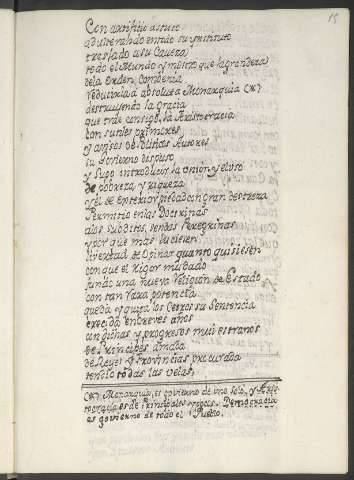 15
Con artificio astuto
adulterando en todo su ynstituto
trasladò a su Caveza
todo el Mundo, y mostrò que la grandeza
de la Orden, convenia
reducirla à absoluta Monarquia (*)
destruyendo la gracia
que trae consigo, la Aristocracia
con sutiles primores,
y avisos de Politicos Autores
su Govierno dispuso
y supo introducir la Union, y el uso
de pobreza, y riqueza
y el de exterior piedad con gran destreza
Permitio en las Doctrinas
a los subditos sendas Peregrinas
y por que mas lucieren
livertad de Opinar quanto quisiesen
con que el Rigor mudado
fundò una nueva Religion de Estado
con tan rara potencia
que dà, y quita los Cetros su Sentencia
crecida en breves años
con dichas, y progresos mui estraños
de Principes amada
de Reyes, y Provincias procurada
tendio todas las velas,
(*) Monarquia, es govierno de uno solo, y Aris-
tocracia es de Principales Democracia
es govierno de todo el Pueblo.